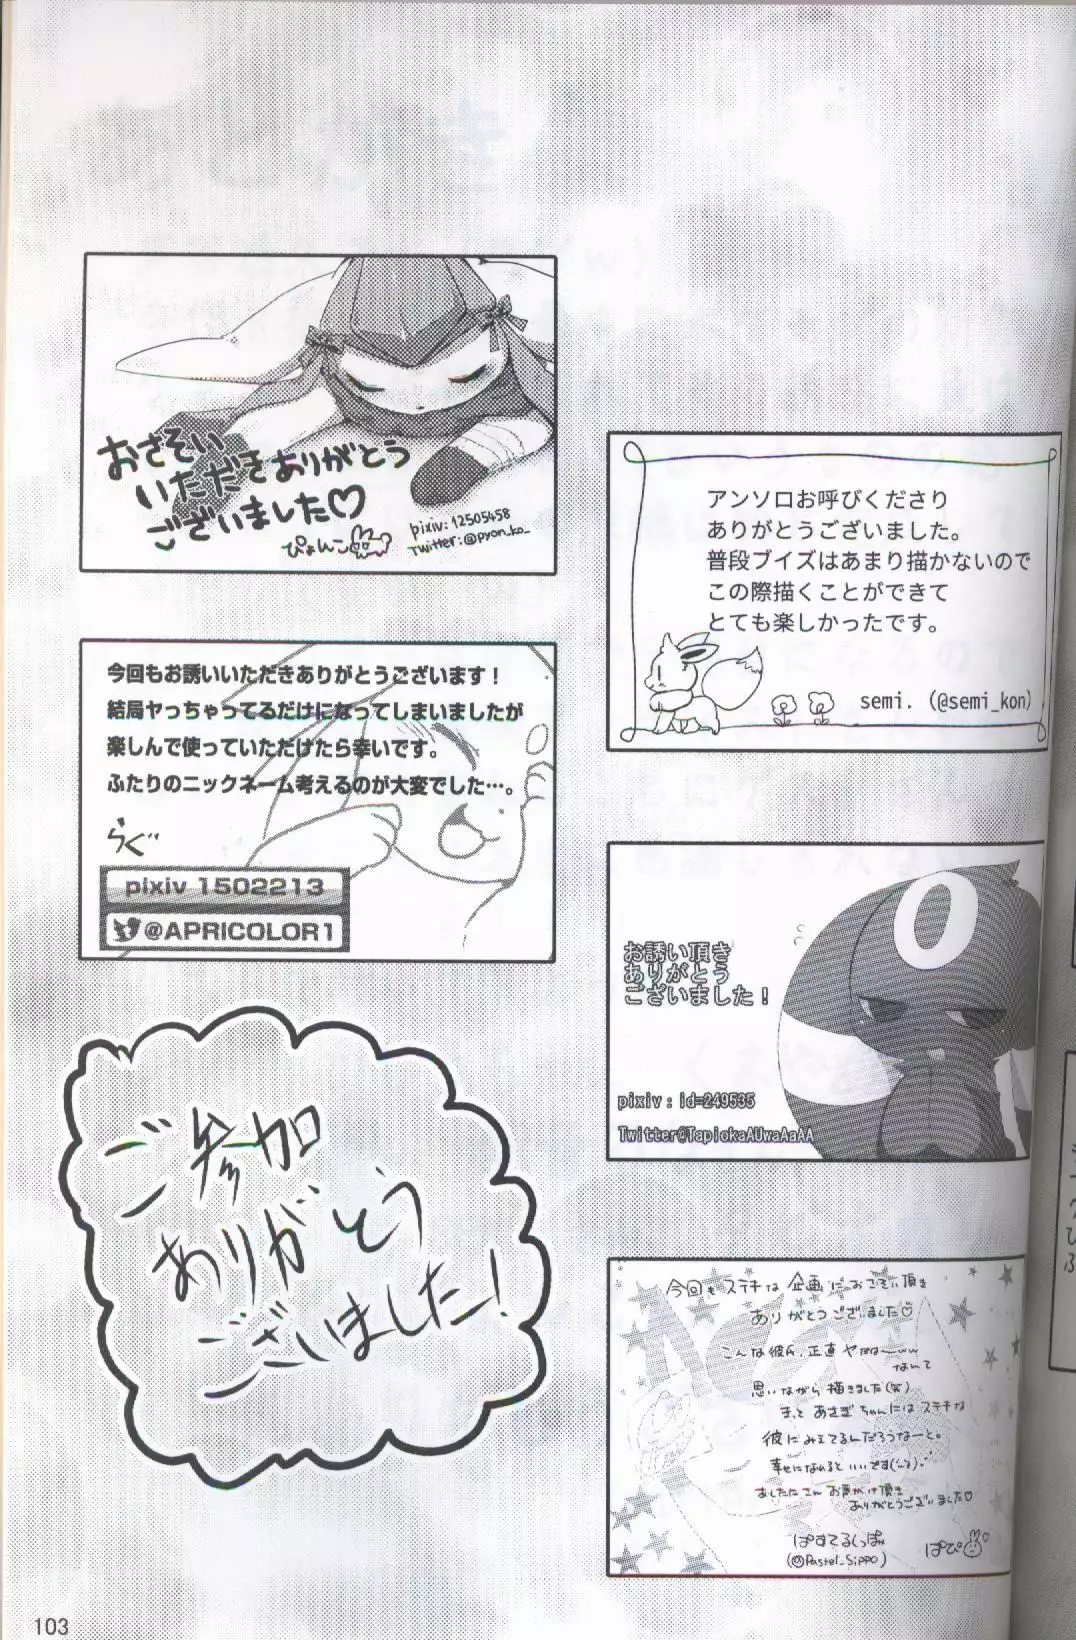 おさそい
いただきありがとう
ございました♡
ぴょんこ
pixiv: 12505458
Twitter:@pyon_ko_
アンソロお呼びくださり
ありがとうございました。
普段ブイズはあまり描かないので
この際描くことができて
とても楽しかったです。
semi. (@semi_kon)
今回もお誘いいただきありがとうございます!
結局ヤっちゃってるだけになってしまいましたが
楽しんで使っていただけたら幸いです。
ふたりのニックネーム考えるのが大変でした…。
らぐ
pixiv 1502213
@APRICOLOR1
お誘い頂き
ありがとう
ございました!
pixiv:id=249535
Twitter@TapiokaAUwaAaAA
ご参加
ありがとう
ございました!
今回もステキな企画におさそい頂き
ありがとうございました♡
こんな彼氏、正直ヤだな〜ww
なんて
思いながら描きました(笑)
きっとあさぎちゃんにはステキな
彼にみえてるんだろうなーと。
幸せになれるといいです
お声がけ頂き
ありがとうございました♡
ぱすてるしっぽ
(@Pastel_Sippo)
ぱぴ
103